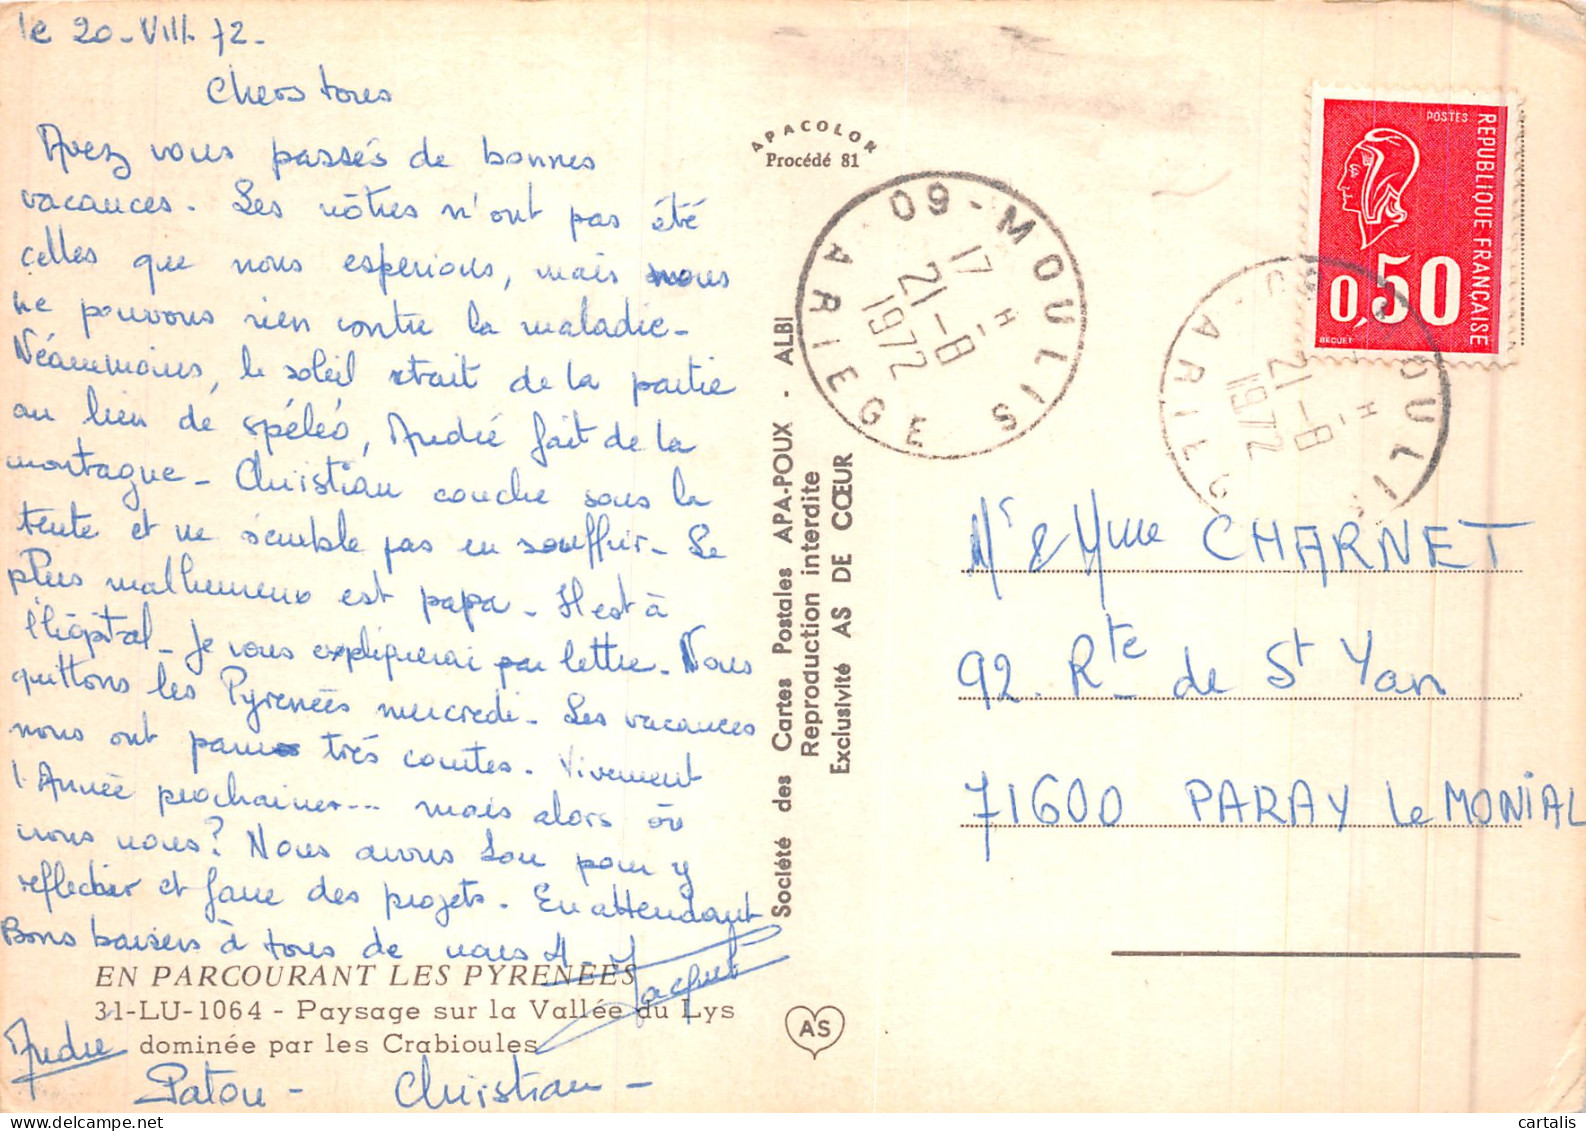 le 20-VIII-72-
Chers tous
Avez vous passés de bonnes
vacances. Les nôtres n'ont pas été
celles que nous esperions, mais nous
ne pouvons rien contre la maladie-
Néammoins, le soleil était de la partie
au lieu de spéléo, André fait de la
montagne- Christian couche sous la
tente et ne semble pas en souffrir- Le
plus malheureux est papa- Il est à
l'hôpital- Je vous expliquerai par lettre. Nous
quittons les Pyrenées mercredi- Les vacances
nous ont paru très courtes. Vivement
l'Année prochaine... mais alors où
irons nous? Nous avons 1 an pour y
reflechir et faire des projets. En attendant
Bons baisers à tous de nous 4-
Jacquet
André
Patou - Christian -
EN PARCOURANT LES PYRENEES
31-LU-1064 - Paysage sur la Vallée du Lys
dominée par les Crabioules
APACOLOR
Procédé 81
Société des Cartes Postales APA-POUX - ALBI
Reproduction interdite
Exclusivité AS DE CŒUR
AS
09-MOULIS
17 H
21-8
1972
ARIEGE
POSTES
REPUBLIQUE FRANÇAISE
0,50
BEQUET
OULIS
H
21-8
1972
ARIEG
Mr & Mme CHARNET
92. Rte de St Yan
71600 PARAY Le MONIAL
cartalis